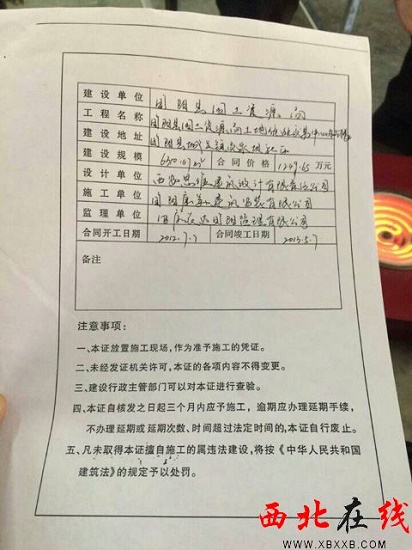 建设单位 固阳县国土资源局
工程名称 固阳县国土资源局土地
建设地址 固阳县
建设规模 合同价格 1249.65 万元
设计单位 设计有限责任公司
施工单位 固阳 有限公司
监理单位 有限公司
合同开工日期 2012.7.7 合同竣工日期 2013.5.7
备注
注意事项：
一、本证放置施工现场，作为准予施工的凭证。
二、未经发证机关许可，本证的各项内容不得变更。
三、建设行政主管部门可以对本证进行查验。
四、本证自核发之日起三个月内应予施工，逾期应办理延期手续，
不办理延期或延期次数、时间超过法定时间的，本证自行废止。
五、凡未取得本证擅自施工的属违法建设，将按《中华人民共和国
建筑法》的规定予以处罚。
西北在线
WWW.XBXXB.COM